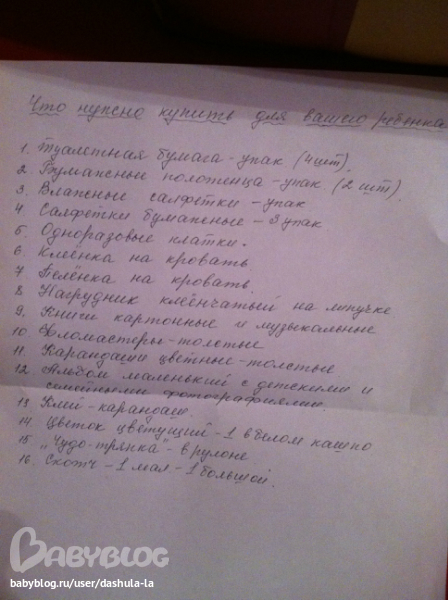 Что нужно купить для вашего ребенка
1. Туалетная бумага - упак (4 шт).
2. Бумажные полотенца - упак (2 шт).
3. Влажные салфетки - упак
4. Салфетки бумажные - 3 упак
5. Одноразовые платки.
6. Клеёнка на кровать.
7. Пелёнка на кровать.
8. Нагрудник клеёнчатый на липучке
9. Книги картонные и музыкальные
10. Фломастеры - толстые
11. Карандаши цветные - толстые
12. Альбом маленький с детскими и
семейными фотографиями.
13. Клей - карандаш.
14. Цветок цветущий - 1 в белом кашпо
15. "Чудо-тряпка" - в рулоне
16. Скотч - 1 мал - 1 большой.
BABYBLOG
babyblog.ru/user/dashula-la